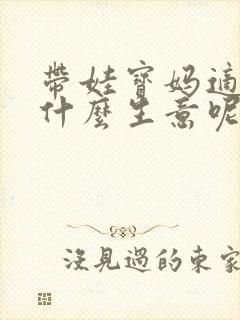 帶娃寶媽適
什麼生意呢
沒見過的東家